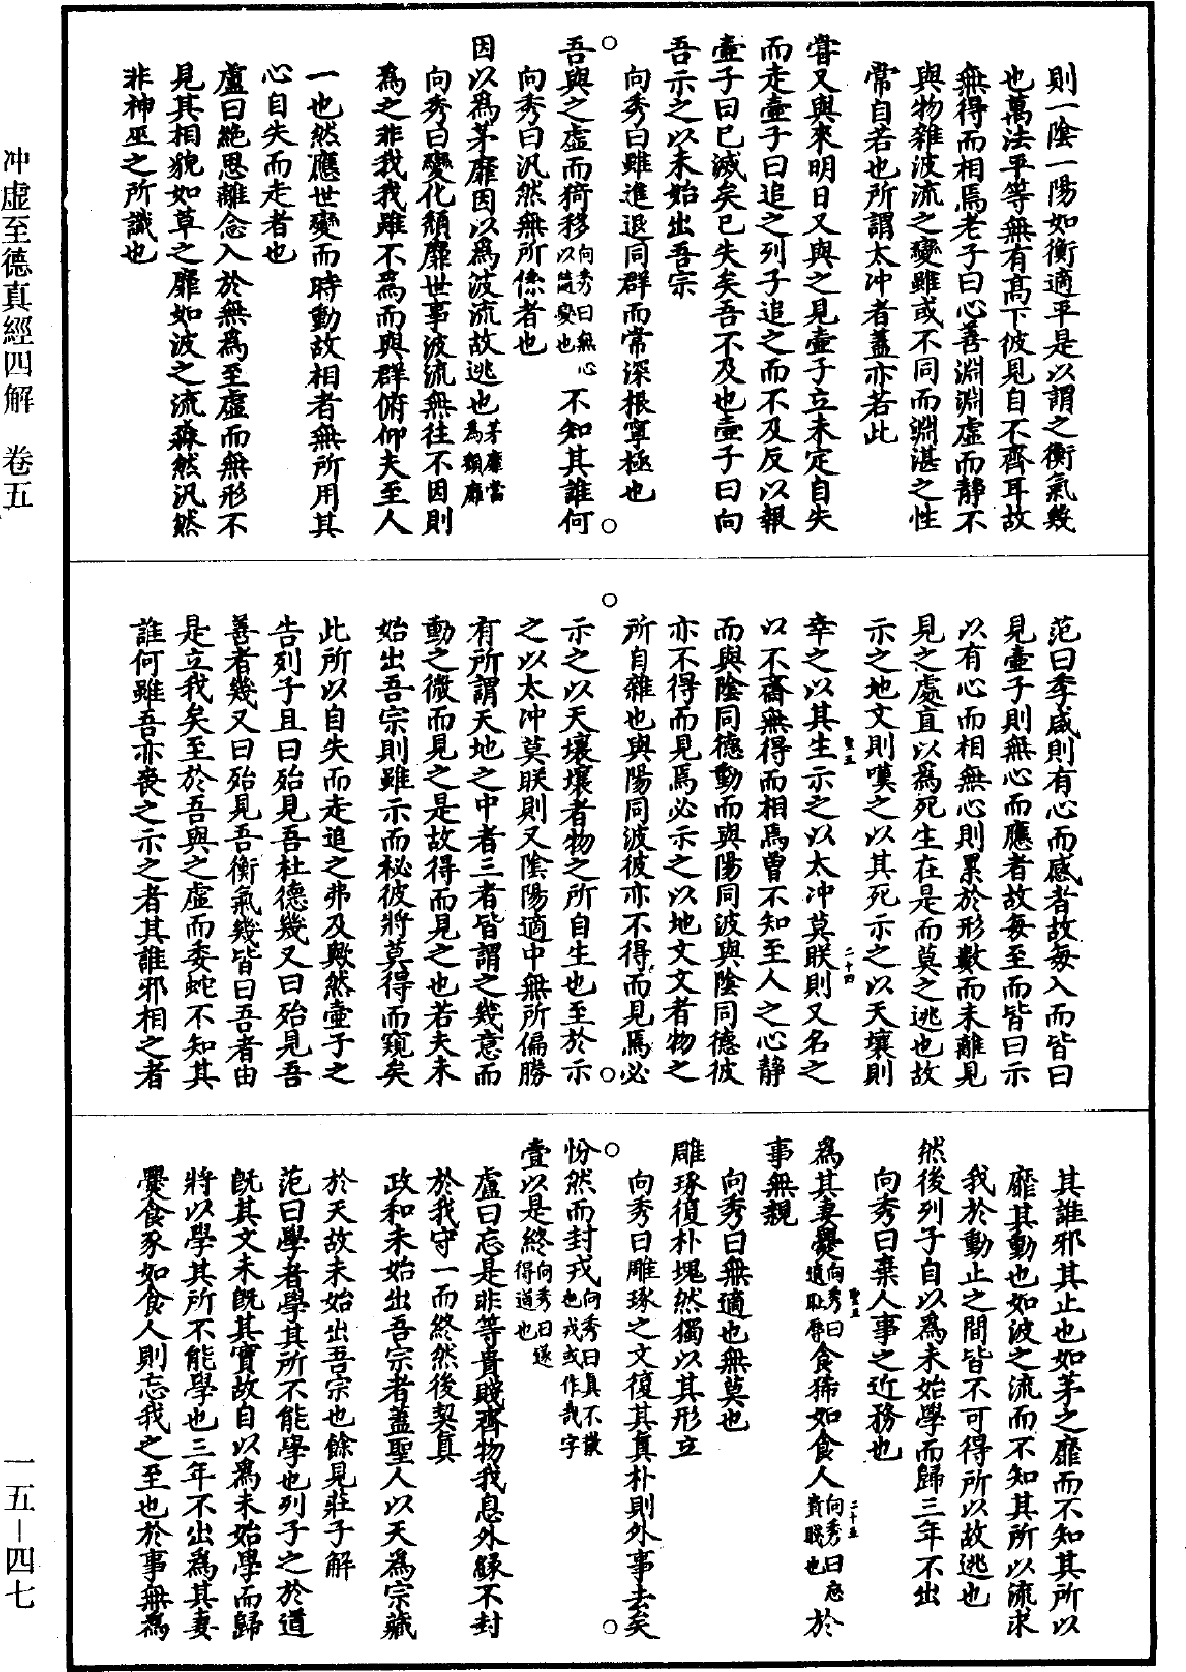 則一陰一陽如衡適平是以謂之衡氣幾
也萬法平等無有高下彼見自不齊耳故
無得而相焉老子曰心善淵淵虛而靜不
與物雜波流之變雖或不同而淵湛之性
常自若也所謂太冲者蓋亦若此
嘗又與來明日又與之見壺子立未定自失
而走壺子曰追之列子追之而不及反以報
壺子曰已滅矣已失矣吾不及也壺子曰向
吾示之以未始出吾宗
向秀曰雖進退同群而常深根寧極也
吾與之虛而猗移向秀曰無心以隨變也不知其誰何
向秀曰汎然無所係者也
因以爲茅靡因以爲波流故逃也茅靡當爲頹靡
向秀曰變化頹靡世事波流無往不因則
爲之非我我雖不爲而與群俯仰夫至人
一也然應世變而時動故相者無所用其
心自失而走者也
盧曰絕思離念入於無爲至虛而無形不
見其相貌如草之靡如波之流森然汎然
非神巫之所識也
范曰季咸則有心而感者故每入而皆曰
見壺子則無心而應者故每至而皆曰示
以有心而相無心則累於形數而未離見
見之處直以爲死生在是而莫之逃也故
示之地文則嘆之以其死示之以天壤則
幸之以其生示之以太冲莫朕則又名之
以不齋無得而相焉曾不知至人之心靜
而與陰同德動而與陽同波與陰同德彼
亦不得而見焉必示之以地文文者物之
所自雜也與陽同波彼亦不得而見焉必
示之以天壤壤者物之所自生也至於示
之以太冲莫朕則又陰陽適中無所偏勝
有所謂天地之中者三者皆謂之幾意而
動之微而見之是故得而見之也若夫未
始出吾宗則雖示而秘彼將莫得而窺矣
此所以自失而走追之弗及歟然壺子之
告列子且曰殆見吾杜德幾又曰殆見吾
善者幾又曰殆見吾衡氣幾皆曰吾者由
是立我矣至於吾與之虛而委蛇不知其
誰何雖吾亦喪之示之者其誰邪相之者
其誰邪其止也如茅之靡而不知其所以
靡其動也如波之流而不知其所以流求
我於動止之間皆不可得所以故逃也
然後列子自以爲未始學而歸三年不出
向秀曰棄人事之近務也
爲其妻爨向秀曰遺恥辱食狶如食人向秀曰忘貴賤也於
事無親
向秀曰無適也無莫也
雕琢復朴塊然獨以其形立
向秀曰雕琢之文復其真朴則外事去矣
怐然而封戎向秀曰真不散也戎或作哉字
壹以是終向秀曰遂得道也
盧曰忘是非等貴賤齊物我息外緣不封
於我守一而終然後契真
政和未始出吾宗者蓋聖人以天爲宗藏
於天故未始出吾宗也餘見莊子解
范曰學者學其所不能學也列子之於道
既其文未既其實故自以爲未始學而歸
將以學其所不能學也三年不出爲其妻
爨食豕如食人則忘我之至也於事無爲
冲虛至德真經四解 卷五
一五－四七